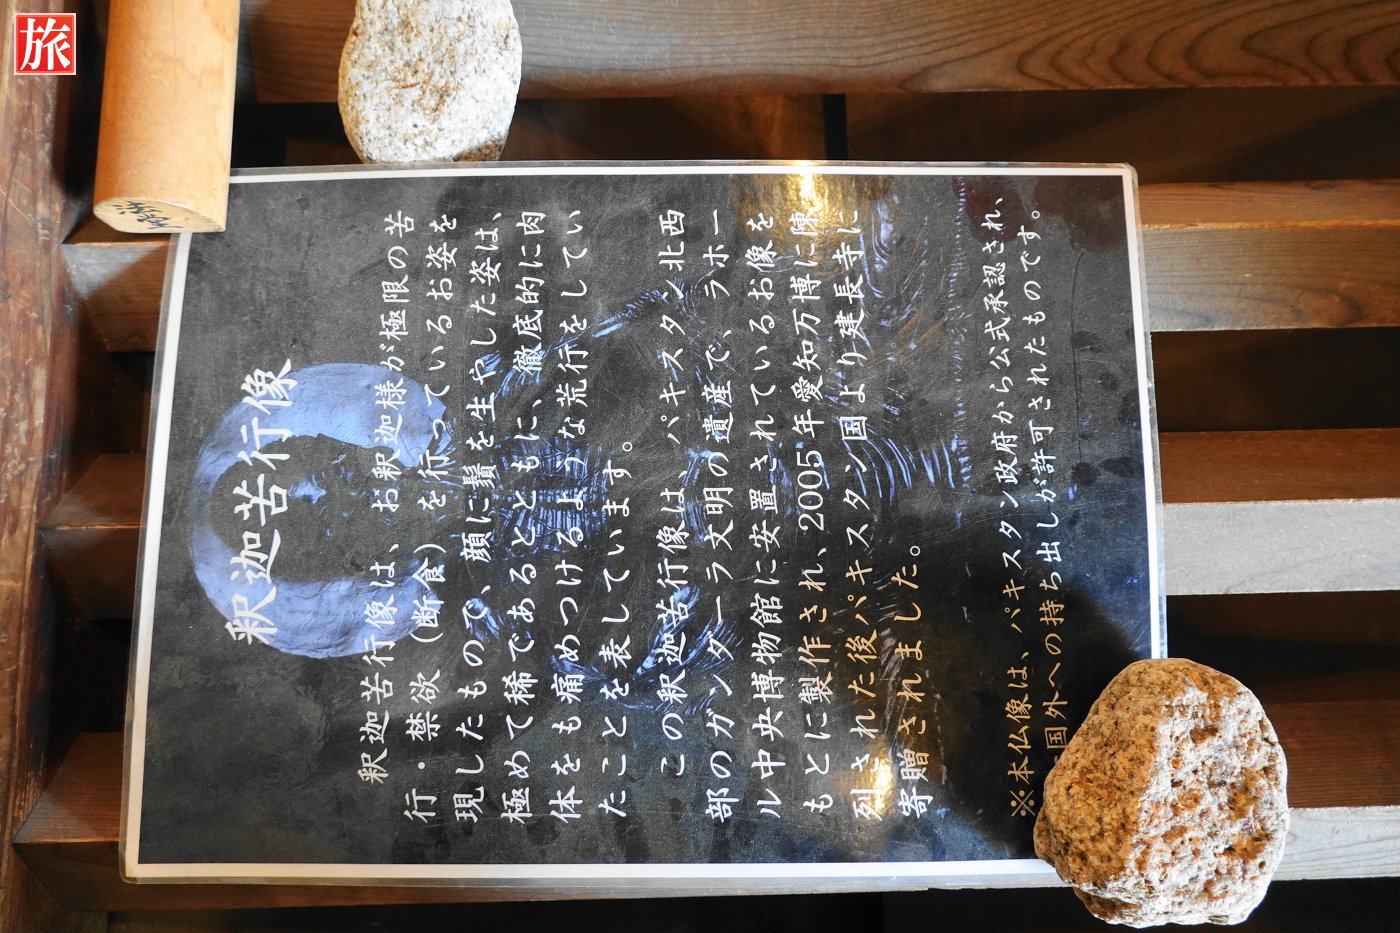 旅
釈迦苦行像
釈迦苦行像は、お釈迦様が極限の苦
行・禁欲(断食)を行っているお姿を
現したもので、顔に鬚を生やした姿は、
極めて稀であるとともに、徹底的に肉
体をも痛めつけるような荒行をしてい
たことを表しています。
この釈迦苦行像は、パキスタン北西
部のガンダーラ文明の遺産で、ラホー
ル中央博物館に安置されているお像を
もとに製作され、2005年愛知万博に陳
列された後パキスタン国より建長寺に
寄贈されました。
※本仏像は、パキスタン政府から公式承認され、
国外への持ち出しが許可されたものです。